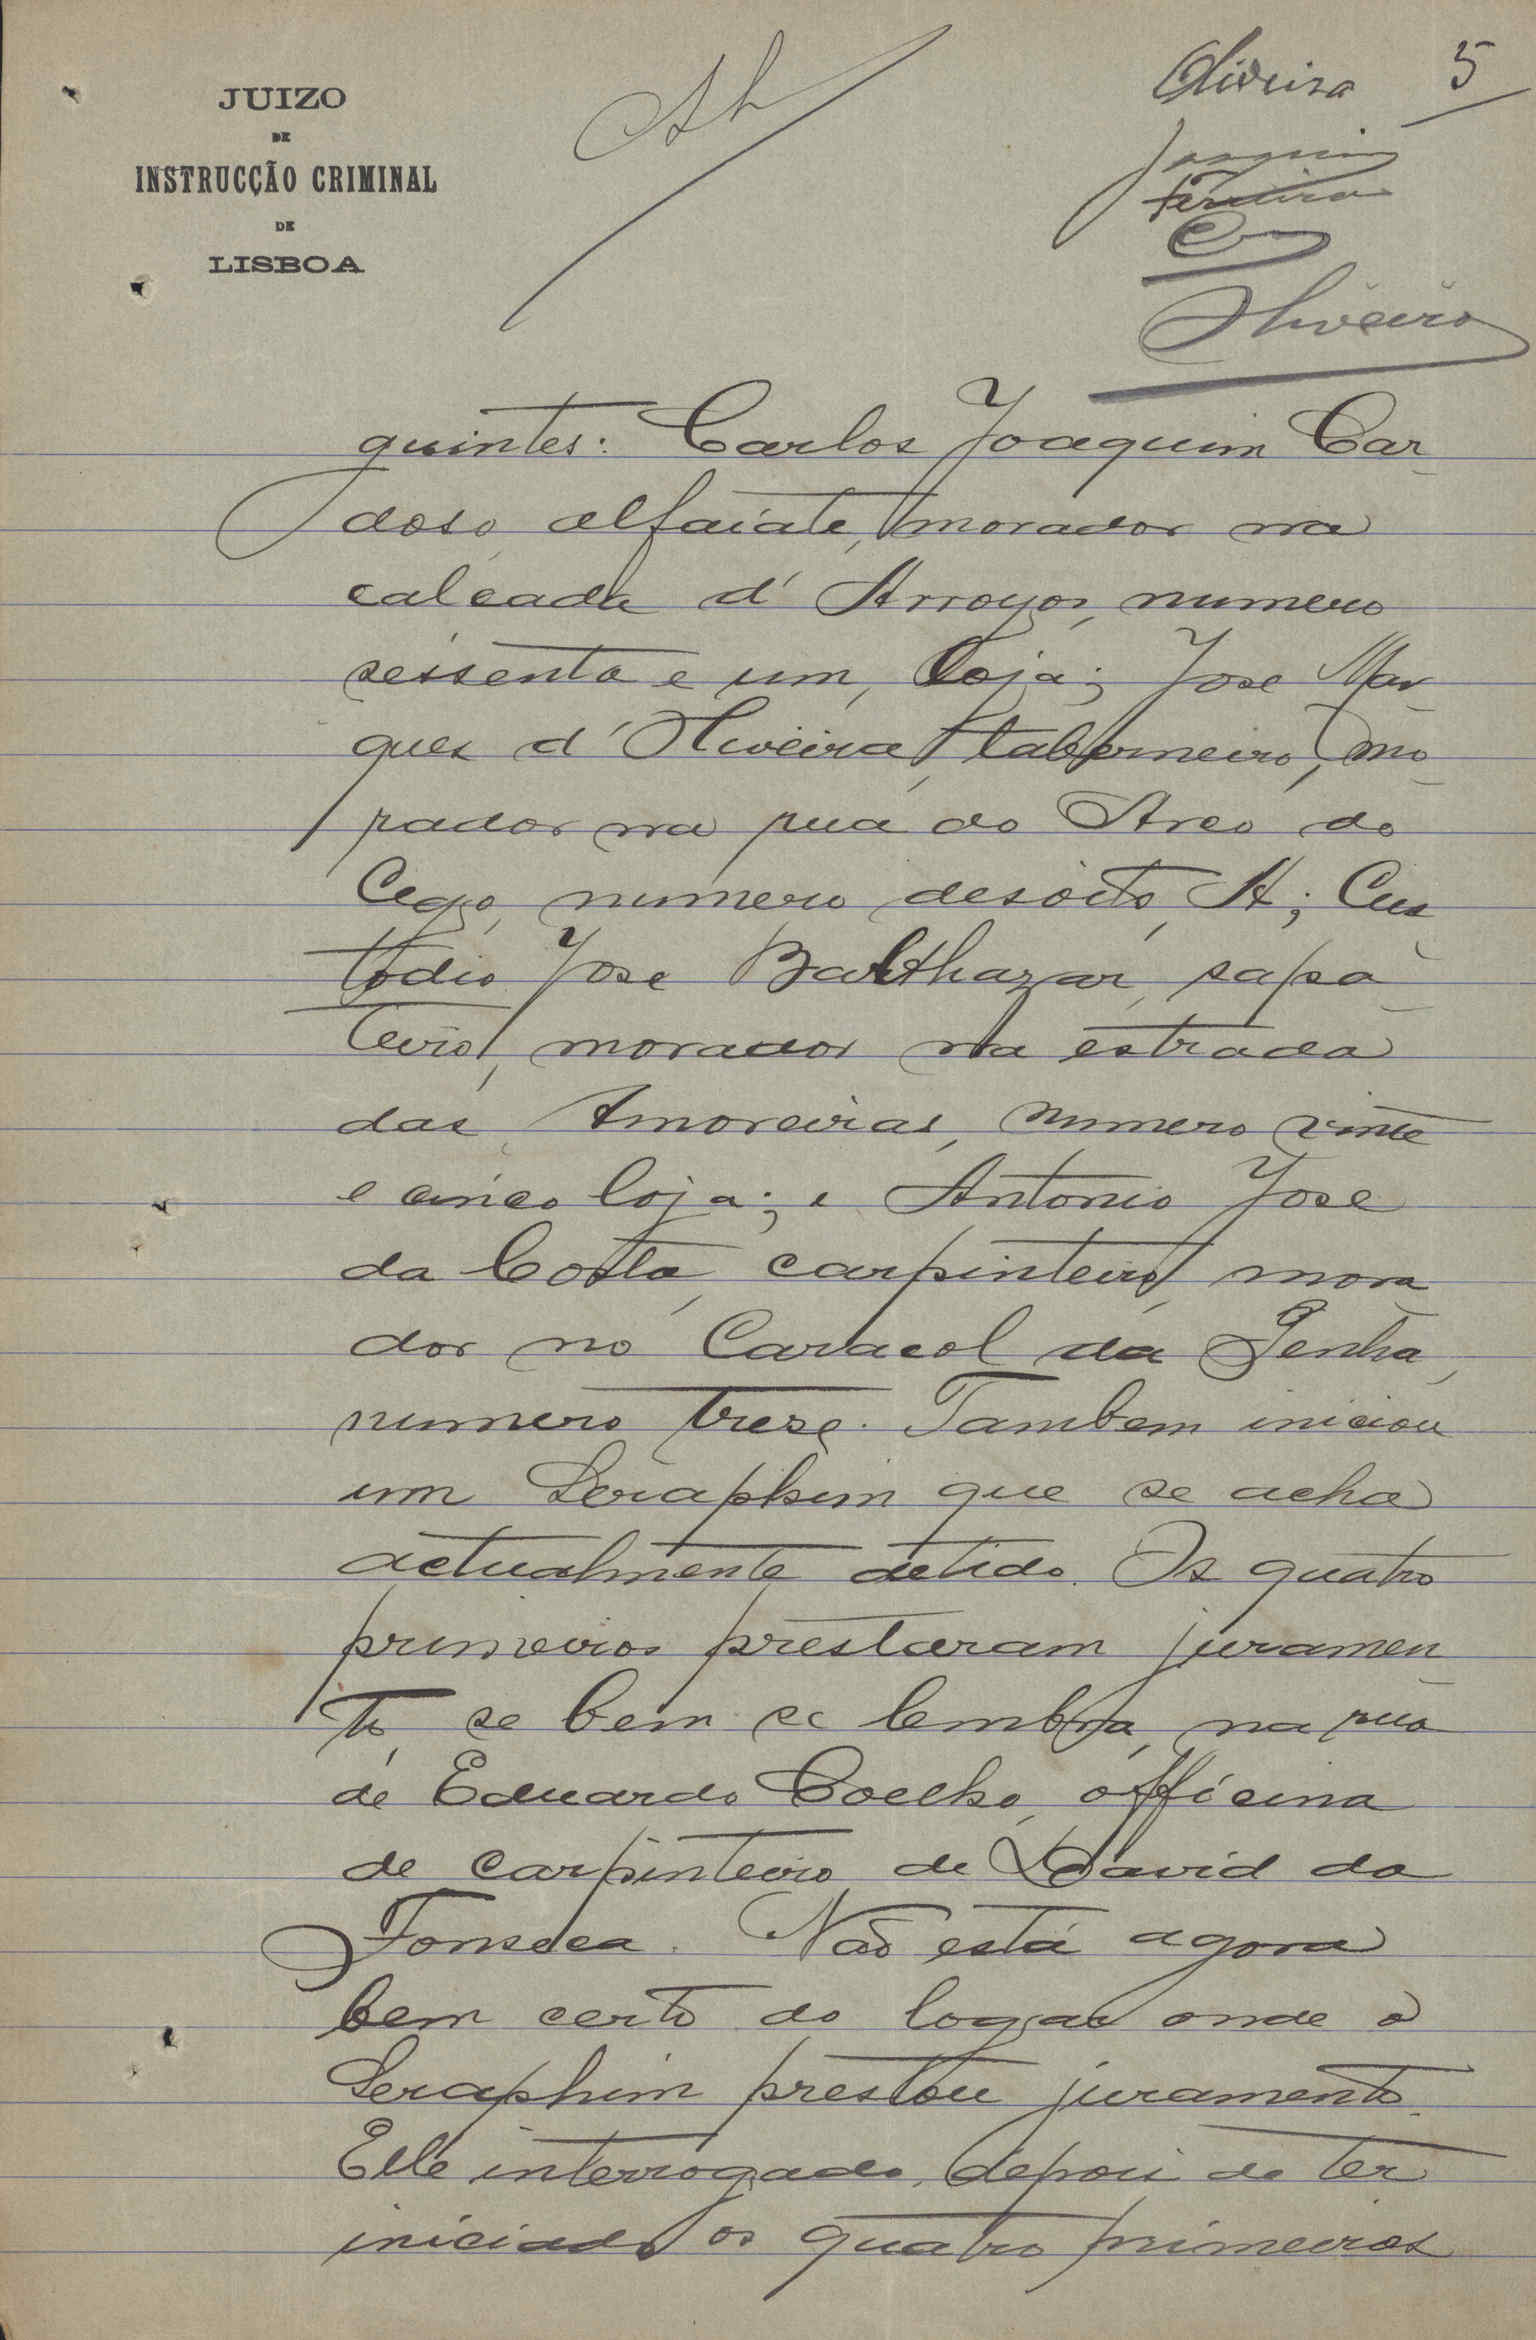 JUIZO
DE
INSTRUCÇÃO CRIMINAL
DE
LISBOA
Oliveira 5
Joaquim
Ferreira
Oliveira
guintes: Carlos Joaquim Car-
doso, alfaiate, morador na
calçada d'Arroyos, numero
sessenta e um, loja; Jose Mar-
ques d'Oliveira, taberneiro, mo-
rador na rua do Arco do
Cego, numero desoito, A; Cus-
todio Jose Balthazar, sapa-
teiro, morador na estrada
das Amoreiras, numero vinte
e cinco loja; e Antonio Jose
da Costa, carpinteiro, mora-
dor no Caracol da Penha,
numero trese. Tambem iniciou
um Seraphim que se acha
actualmente detido. Os quatro
primeiros prestaram juramen-
to, se bem se lembra, na rua
de Eduardo Coelho, officina
de carpinteiro de David da
Fonseca. Não está agora
bem certo do logar onde o
Seraphim prestou juramento.
Elle interrogado, depois de ter
iniciado os quatro primeiros